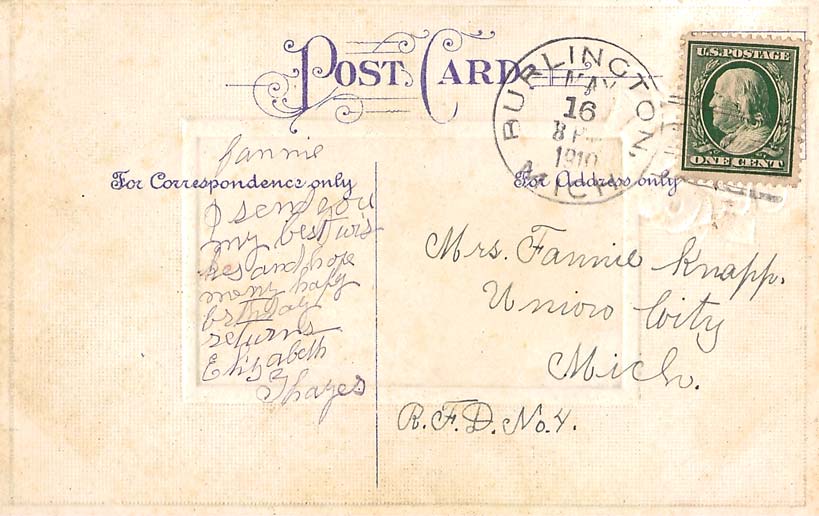 POST CARD
BURLINGTON,
MAY
16
8 P
1910
MICH.
U.S. POSTAGE
ONE CENT
For Correspondence only
For Address only
Fannie
I send you
my best wis-
hes and hope
meny hapy
birthday
returns
Elizabeth
Mrs. Fannie Knapp.
Union City
Mich.
R.F.D. No. 4.